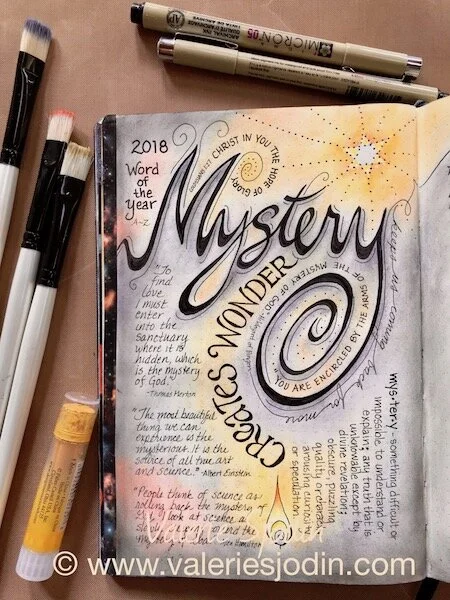 MICRON 05
2018
Word
of
the
Year
A-Z
COLOSSIANS 1:27 CHRIST IN YOU THE HOPE OF GLORY
Mystery
CREATES WONDER
"YOU ARE ENCIRCLED BY THE ARMS OF THE MYSTERY OF GOD"
keeps us coming back for more
"To
find
love
I must
enter
into the
sanctuary
where it is
hidden, which
is the mystery
of God."
-Thomas Merton
"The most beautiful
thing we can
experience is the
mysterious. It is the
source of all true art
and science." -Albert Einstein
"People think of science as
rolling back the mystery of
God. I look at science as
slowly
mys·tery - something difficult or
impossible to understand or
explain; any truth that is
unknowable except by
divine revelation;
obscure, puzzling
quality or character
arousing curiosity
or speculation
© www.valeriesjodin.com